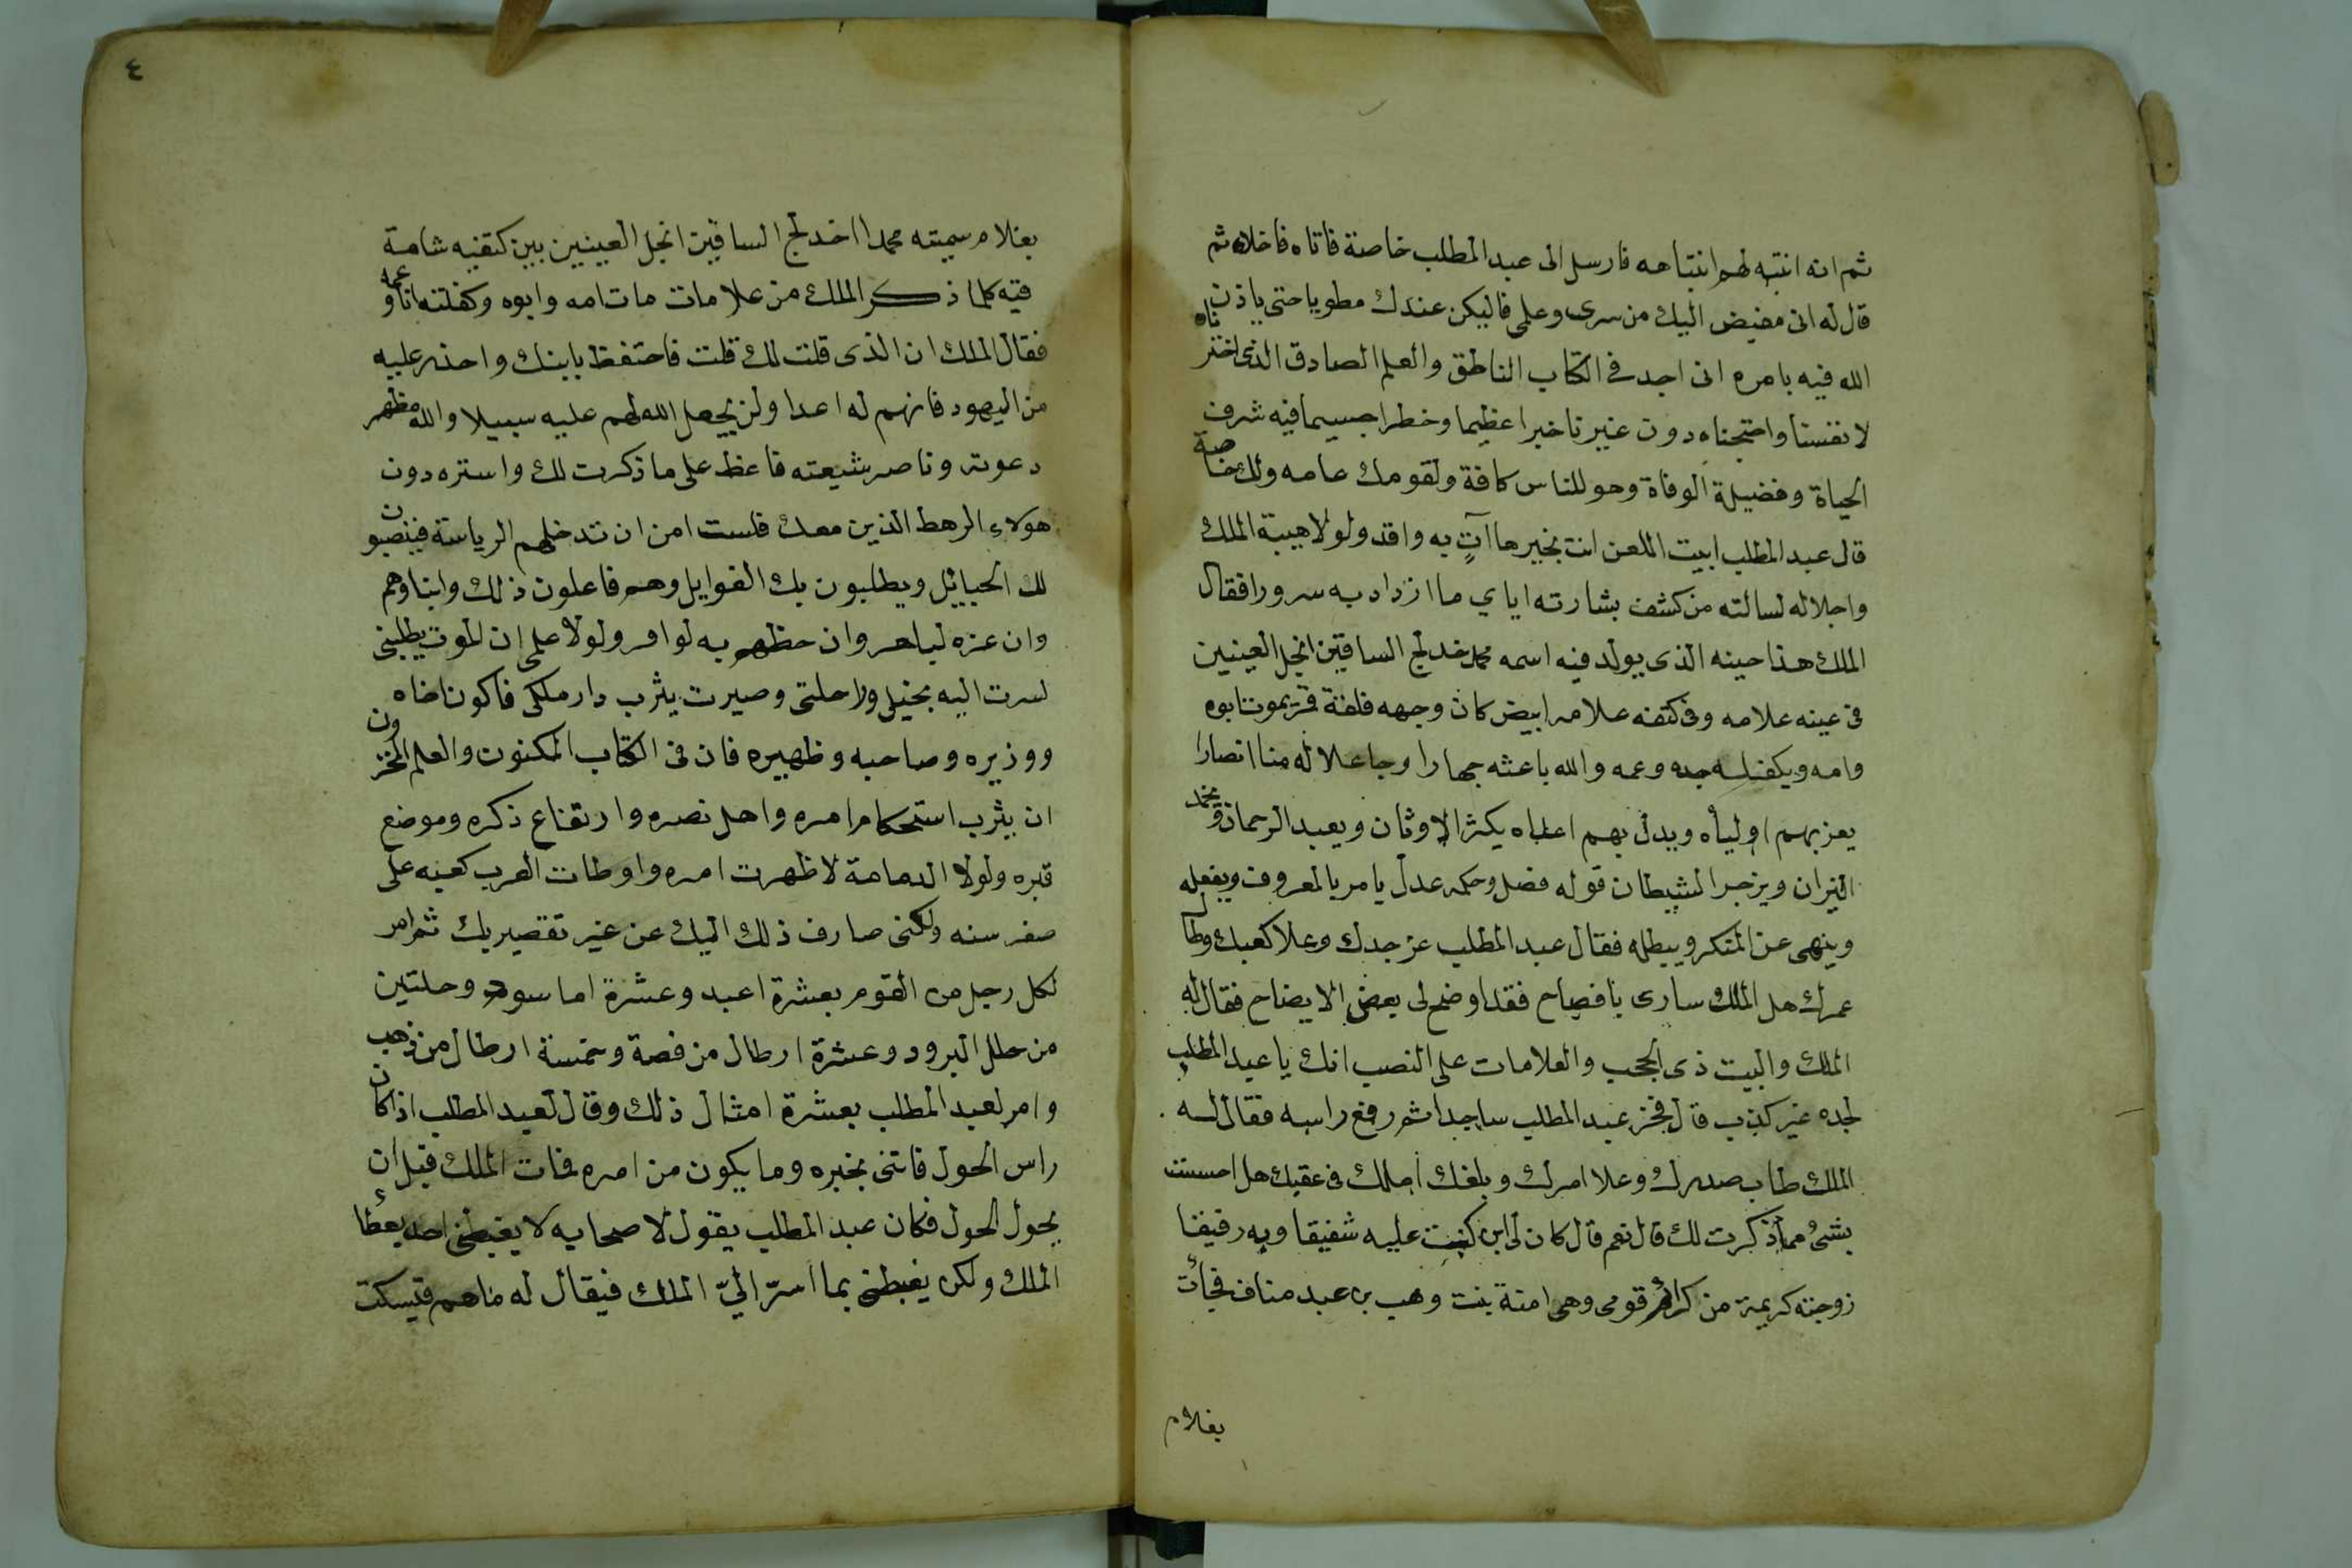 ثم انه انتبه لهم انتباهه فارسل الى عبد المطلب خاصة فاتاه فاخلاه ثم
قال له انى مفيض اليك من سرى وعلمى فاليكن عندك مطويا حتى ياذن
الله فيه بامره انى اجد فى الكتاب الناطق والعلم الصادق الذى اخترناه
لانفسنا واحتجناه دون غيرنا خبرا عظيما وخطرا جسيما فيه شرف
الحياة وفضيلة الوفاة وهو للناس كافة ولقومك عامه ولك خاصة
قال عبد المطلب ابيت اللعن انت بخير ما آتٍ به وافد ولولا هيبة الملك
واجلاله لسالته من كشف بشارته اياي ما ازداد به سرورا فقال
الملك هذا حينه الذى يولد فيه اسمه محمد خدلج الساقين انجل العينين
فى عينه علامه وفى كتفه علامه ابيض كان وجهه فلقة قمر يموت ابوه
وامه ويكفله جده وعمه والله باعثه جهارا وجاعلا له منا انصارا
يعز بهم اوليأه ويدل بهم اعداه يكثر الاوثان ويعبد الرحمان وتخمد
النيران ويزجر الشيطان قوله فصل وحكمه عدل يامر بالمعروف ويفعله
وينهى عن المنكر ويبطله فقال عبد المطلب عز جدك وعلا كعبك وطال
عمرك هل الملك سارى بافصاح فقد اوضح لى بعض الايضاح فقال له
الملك والبيت ذى الحجب والعلامات على النصب انك يا عبد المطلب
لجده غير كذب قال فخر عبد المطلب ساجدا ثم رفع راسه فقال له
الملك طاب صدرك وعلا امرك وبلغك املك فى عقبك هل احسست
بشئ مما ذكرت لك قال نعم قال كان لى ابن كنت عليه شفيقا وبه رفيقا
زوجته كريمة من كرائم قومى وهى امنة بنت وهب بن عبد مناف فجأت
بغلام
٤
بغلام سميته محمدا اخدلج الساقين انجل العينين بين كتفيه شامة
فيه كلما ذكر الملك من علامات مات امه وابوه وكفلته انا وعمه
فقال الملك ان الذى قلت لك قلت فاحتفظ بابنك واحذر عليه
من اليهود فانهم له اعدا ولن يجعل الله لهم عليه سبيلا والله مظهر
دعوته وناصر شيعته فاغظ على ما ذكرت لك واستره دون
هولاء الرهط الذين معك فلست امن ان تدخلهم الرياسة فينصبون
لك الحبايل ويطلبون بك الغوايل وهم فاعلون ذلك وابناوهم
وان عزه لباهر وان حظهم به لوافر ولولا علمى ان الموت يطلبنى
لسرت اليه بخيلى وراحلتى وصيرت يثرب دار ملكى فاكون اخاه
ووزيره وصاحبه وظهيره فان فى الكتاب المكنون والعلم المخزون
ان بيثرب استحكام امره واهل نصره وارتفاع ذكره وموضع
قبره ولولا الدمامة لاظهرت امره واوطات العرب كعبه على
صغر سنه ولكنى صارف ذلك اليك عن غير تقصير بك ثم امر
لكل رجل من القوم بعشرة اعبد وعشرة اما سود وحلتين
من حلل البرود وعشرة ارطال من فضة وخمسة ارطال من ذهب
وامر لعبد المطلب بعشرة امثال ذلك وقال لعبد المطلب اذا كان
راس الحول فاتنى بخبره وما يكون من امره فمات الملك قبل ان
يحول الحول فكان عبد المطلب يقول لاصحابه لا يغبطنى احد بعطاء
الملك ولكن يغبطنى بما اسرّ اليّ الملك فيقال له ما هم فيسكت